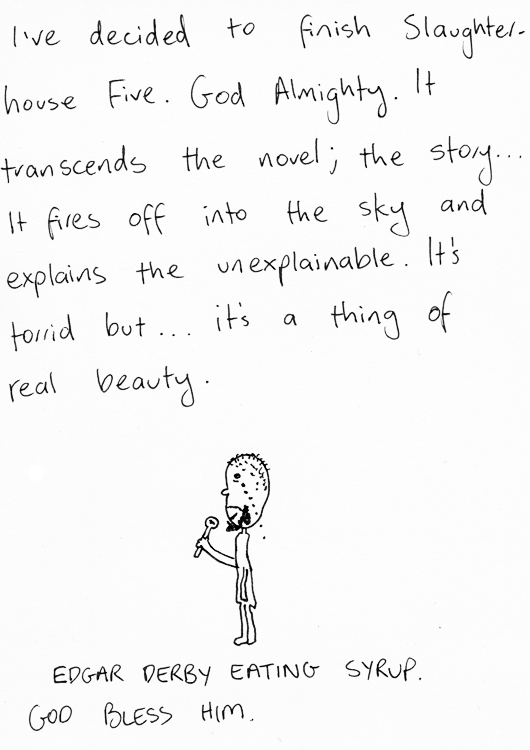 I've decided to finish Slaughter-
house Five. God Almighty. It
transcends the novel; the story...
It fires off into the sky and
explains the unexplainable. It's
torrid but... it's a thing of
real beauty.
EDGAR DERBY EATING SYRUP.
GOD BLESS HIM.